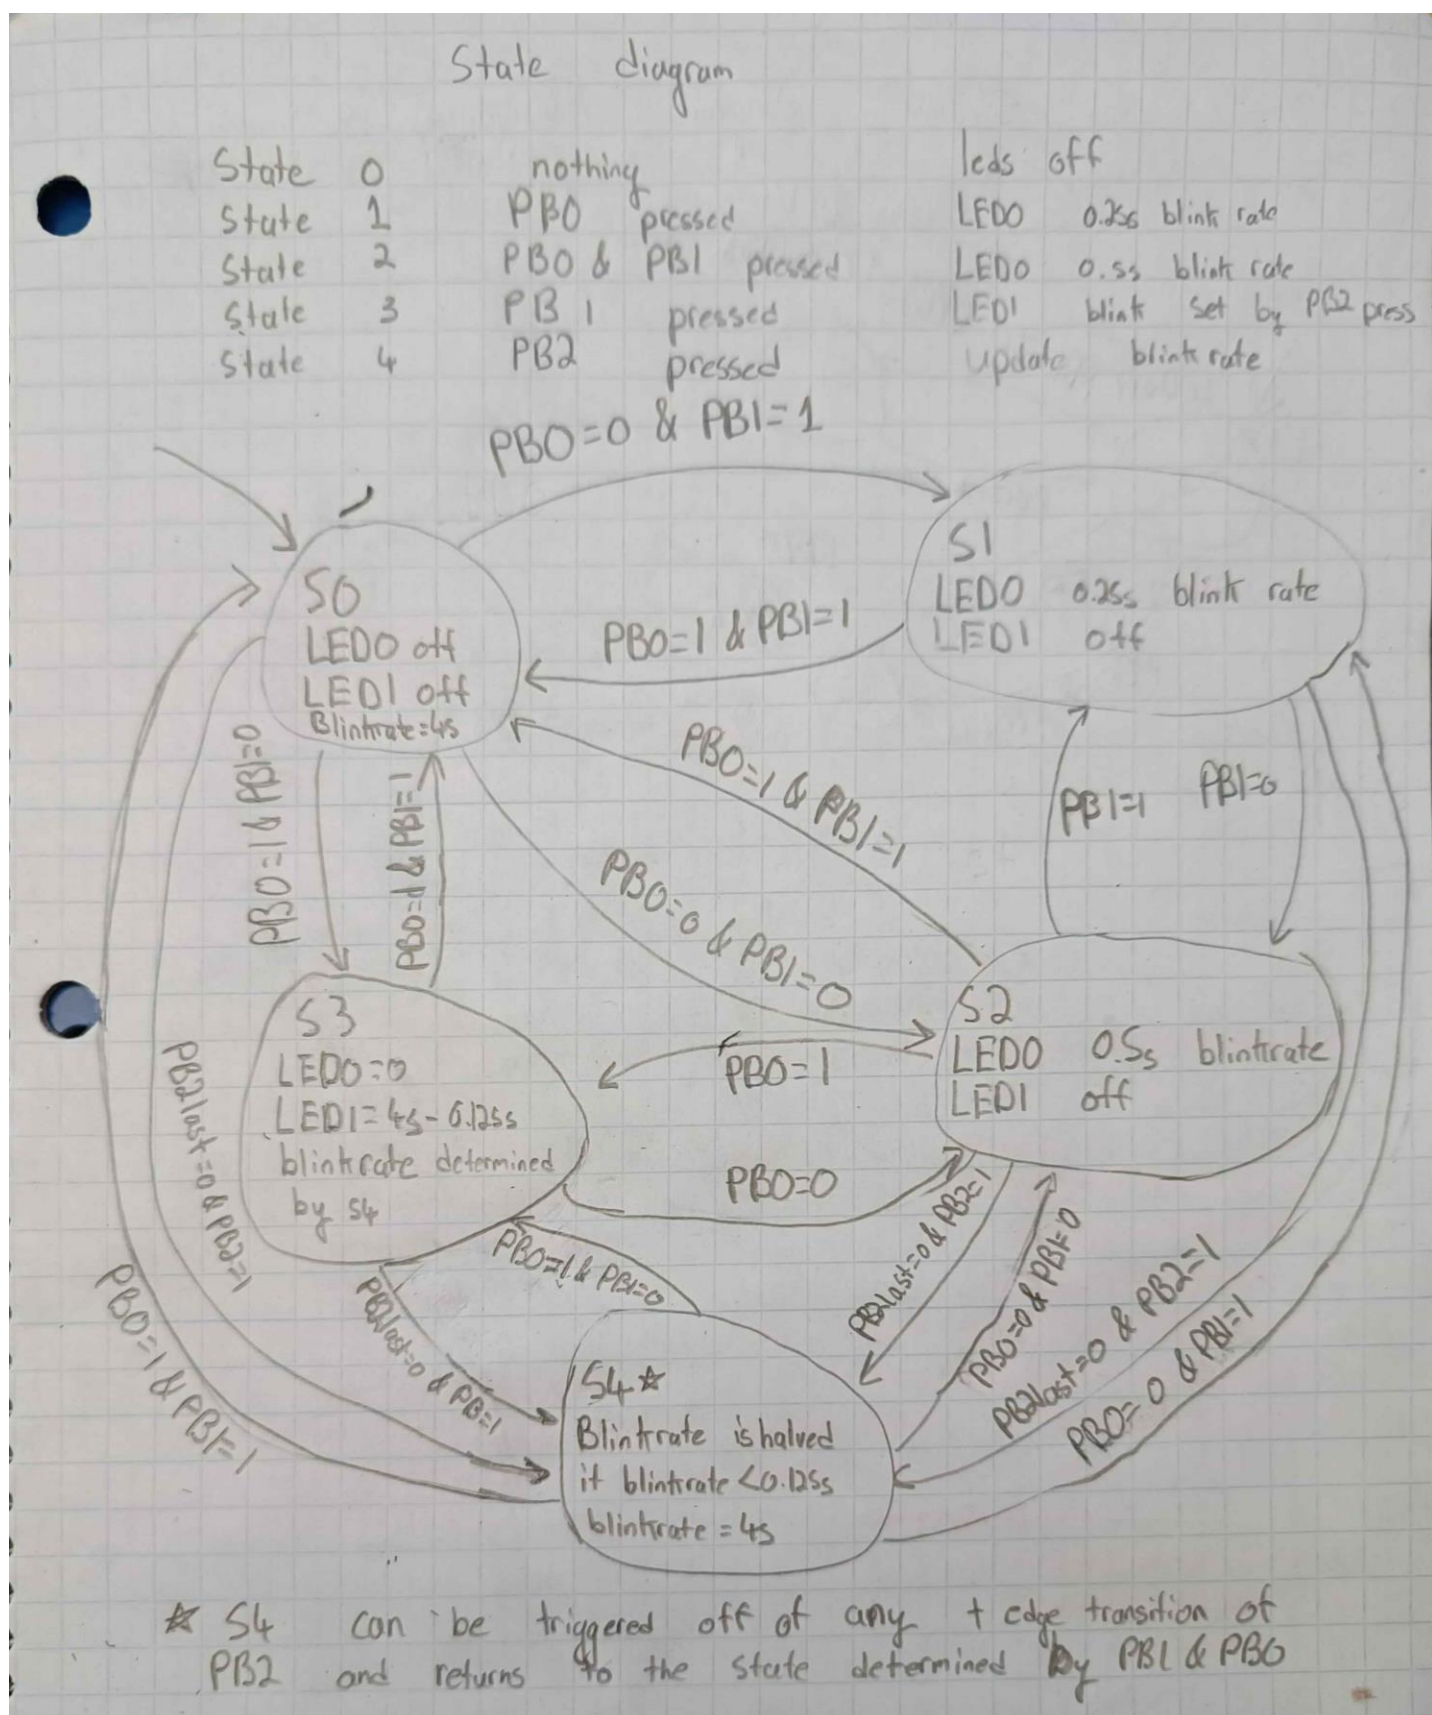 State diagram
State 0 nothing leds off
State 1 PB0 pressed LED0 0.25s blink rate
State 2 PB0 & PB1 pressed LED0 0.5s blink rate
State 3 PB1 pressed LED1 blink set by PB2 press
State 4 PB2 pressed update blink rate
PB0=0 & PB1=1
S0
LED0 off
LED1 off
Blinkrate=4s
S1
LED0 0.25s blink rate
LED1 off
PB0=1 & PB1=1
PB0=1 & PB1=0
PB0=1 & PB1=1
PB0=1 & PB1=1
PB0=0 & PB1=0
PB1=1
PB1=0
S3
LED0=0
LED1=4s-0.125s
blinkrate determined
by S4
PB0=1
PB0=0
S2
LED0 0.5s blinkrate
LED1 off
PB2last=0 & PB2=1
PB0=1 & PB1=1
PB2last=0 & PB=1
PB0=1 & PB1=0
PB2last=0 & PB2=1
PB0=0 & PB1=0
PB2last=0 & PB2=1
PB0=0 & PB1=1
S4☆
Blinkrate is halved
if blinkrate <0.125s
blinkrate=4s
☆ S4 can be triggered off of any + edge transition of
PB2 and returns to the state determined by PB1 & PB0